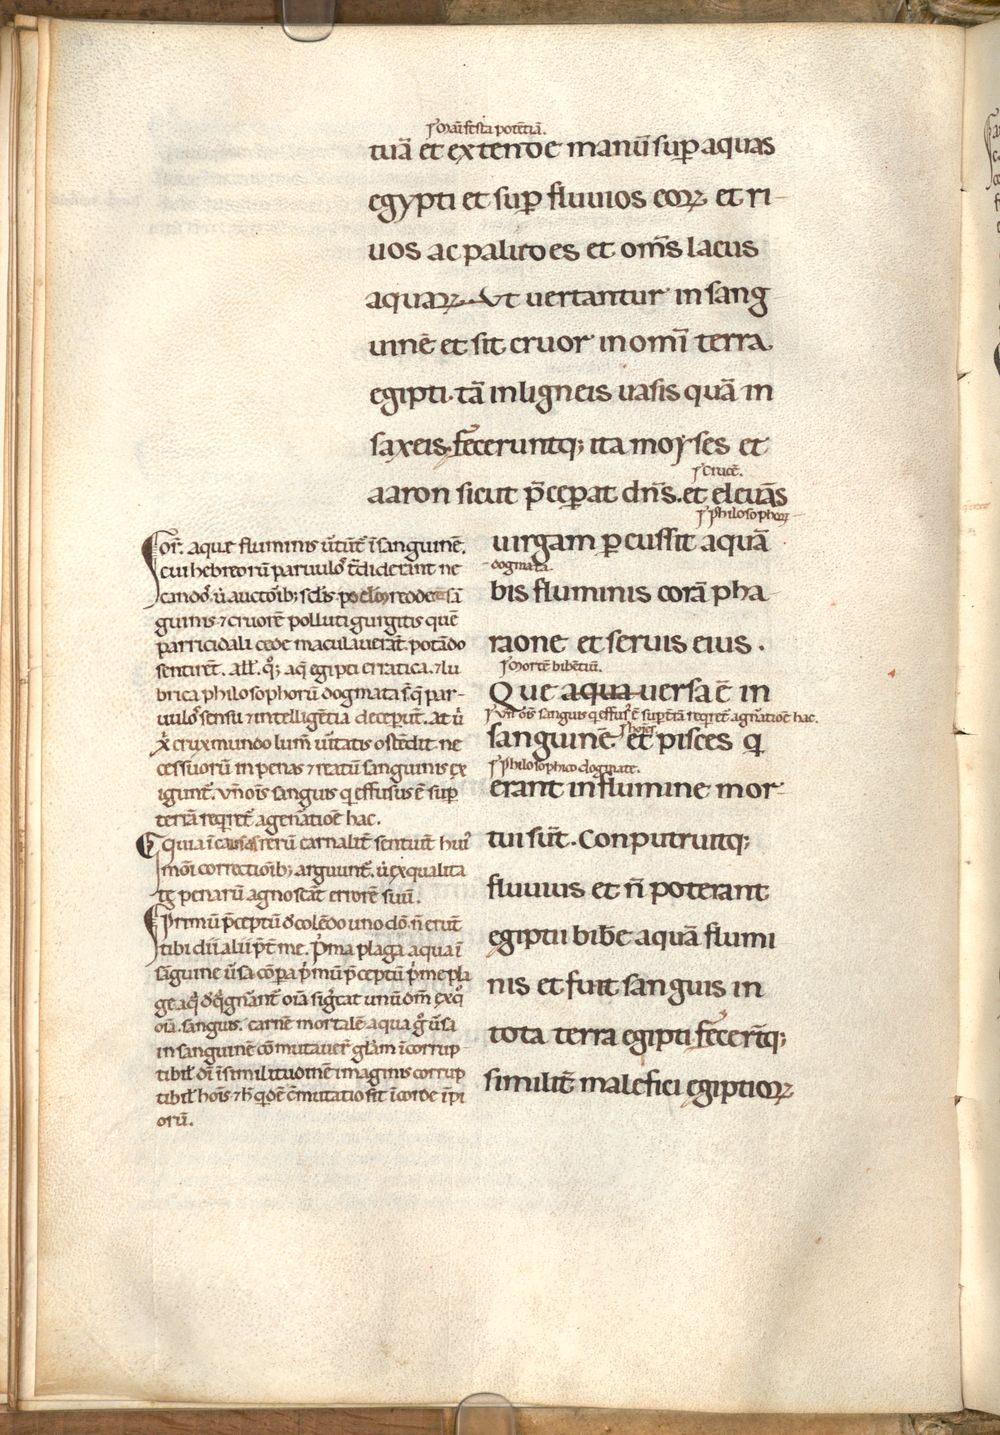 s. manifesta potētiā.
tuā et extende manū sup aquas
egypti et sup fluuios eoꝝ et ri-
uos ac paludes et om̄s lacus
aquaꝝ. Ut uertantur in sang
uinē et sit cruor in om̄i terra
egipti. tā in ligneis uasis quā in
saxeis. fecerunt q; ita moyses et
s. crucē.
aaron sicut p̄ceperat dn̄s. et eleuās
s. philosophoꝝ
uirgam ꝑcussit aquā
dogmata.
bis fluminis corā pha-
raone et seruis eius.
s. mortē bibētiū.
Que aqua uersa ē in
s. Vn̄ oīs sanguis q̄ effusꝰ ē sup terrā reqret̄ a gn̄atiōe hac.
s. hoīes
sanguinē et pisces q̄
s. philosophico dogmate.
erant in flumine mor-
tui sūt. Conputruit q;
fluuius et n̄ poterant
egiptii bibe aquā flumi
nis et fuit sanguis in
tota terra egipti. fecer̄t q;
similit̄ malefici egiptioꝝ
Or̄. aque fluminis ūtūt̄ ī sanguinē.
cui hebreorū paruulos̄ t̄diderant ne
candos̄. ū auctorib; scel̄is reddētē sā
guinis ⁊ cruorē polluti gurgitis quē
parricidali cede maculauerāt. potādo
sentirēt. all̄. q̊; aq̄ egipti erratica. ⁊ lu
brica philosophorū dogmata s̄. q̄ par-
uulos̄ sensu ⁊ intelligētia decep̄ūt. at ū
xp̄i crux mundo lum̄ ūitatis ostēdit. ne
cessuorū in penas ⁊ reatū sanguinis ex
igunt̄. vn̄ oīs sanguis q̄ effusus ē sup
terrā reqret̄ a genatiōe hac.
Et quia ī causas rerū carnalit̄ sentiūt huiꝰ
mōi correctiōib; arguunt̄. ū ex qualita
te penarū agnoscāt errorē suū.
Primū p̄ceptū d̄ colēdo uno dō. n̄ erūt
tibi dii alii p̄t̄ me. P̄ma plaga aqua ī
sāguine ūsa cōpa p̄mū p̄ceptū p̄me pla
ge aq̄ d̄ q̄ gn̄ant̄ oīa sig̊cat unū dm̄ ex q̊
oīa. sanguis. carnē mortalē. aqua g̊ ūsa
in sanguinē cōmutauer̄ gl̄am īcorrup-
tibil̄ dī ī similitudinē imaginis corrup
tibil̄ hoīs. ⁊ h̄ q̄dē c̄mutatio fit ī corde īpi
orū.